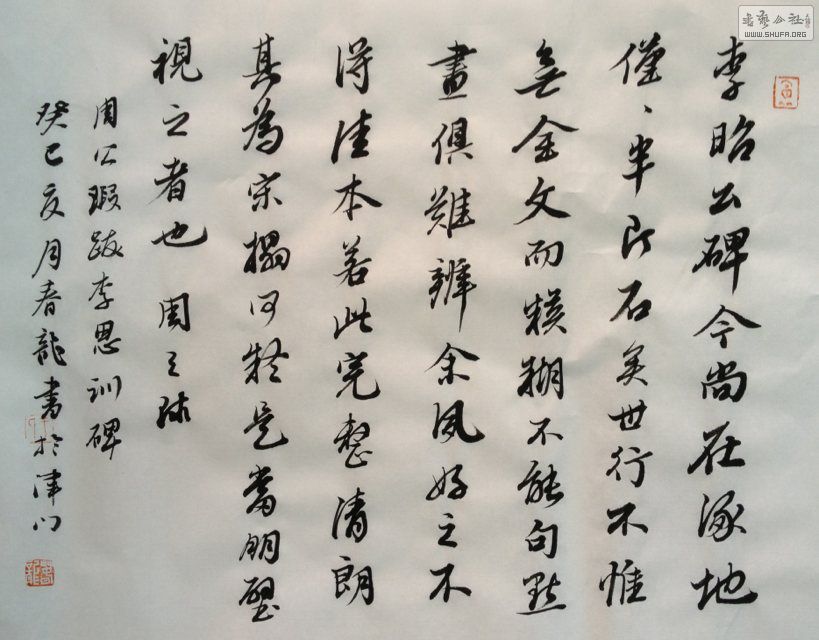 李昭公碑今尚在涿地
僅、半片石矣世行不惟
無全文而糢糊不能句點
畫俱難辨余夙好之不
得佳本若此完整清朗
其為宋搨何疑是當朋璧
視之者也 周天球
周公瑕跋李思訓碑
癸巳亥月春龍書於津門
书艺公社
WWW.SHUFA.ORG